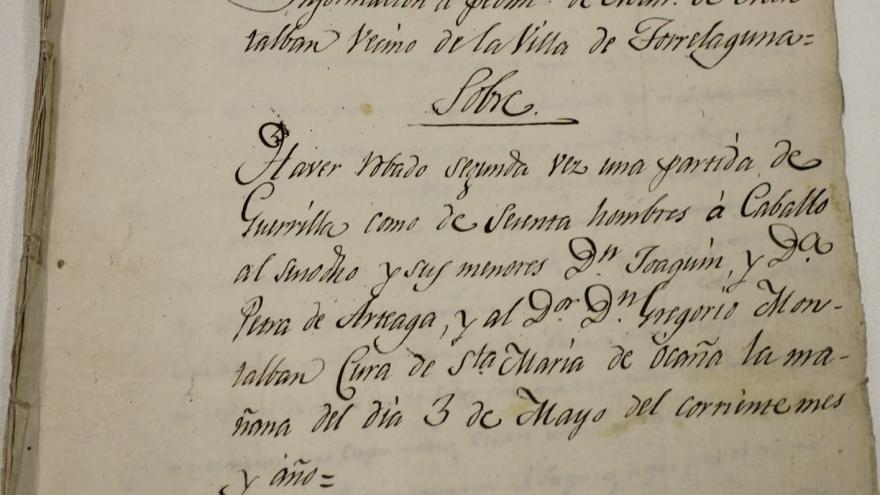 Informacion a pedim.<sup>to</sup> de de Mon
talban Vecino de la Villa de Torrelaguna=
Sobre.
Haver robado segunda vez una partida de
Guerrilla como de Setenta hombres à Caballo
al susodho y sus menores Dn Joaquin, y Da.
Petra de Arteaga, y al Dor Dn Gregorio Mon-
talban Cura de Sta Maria de Ocaña la ma-
ñana del dia 3 de Mayo del corriente mes
y año=